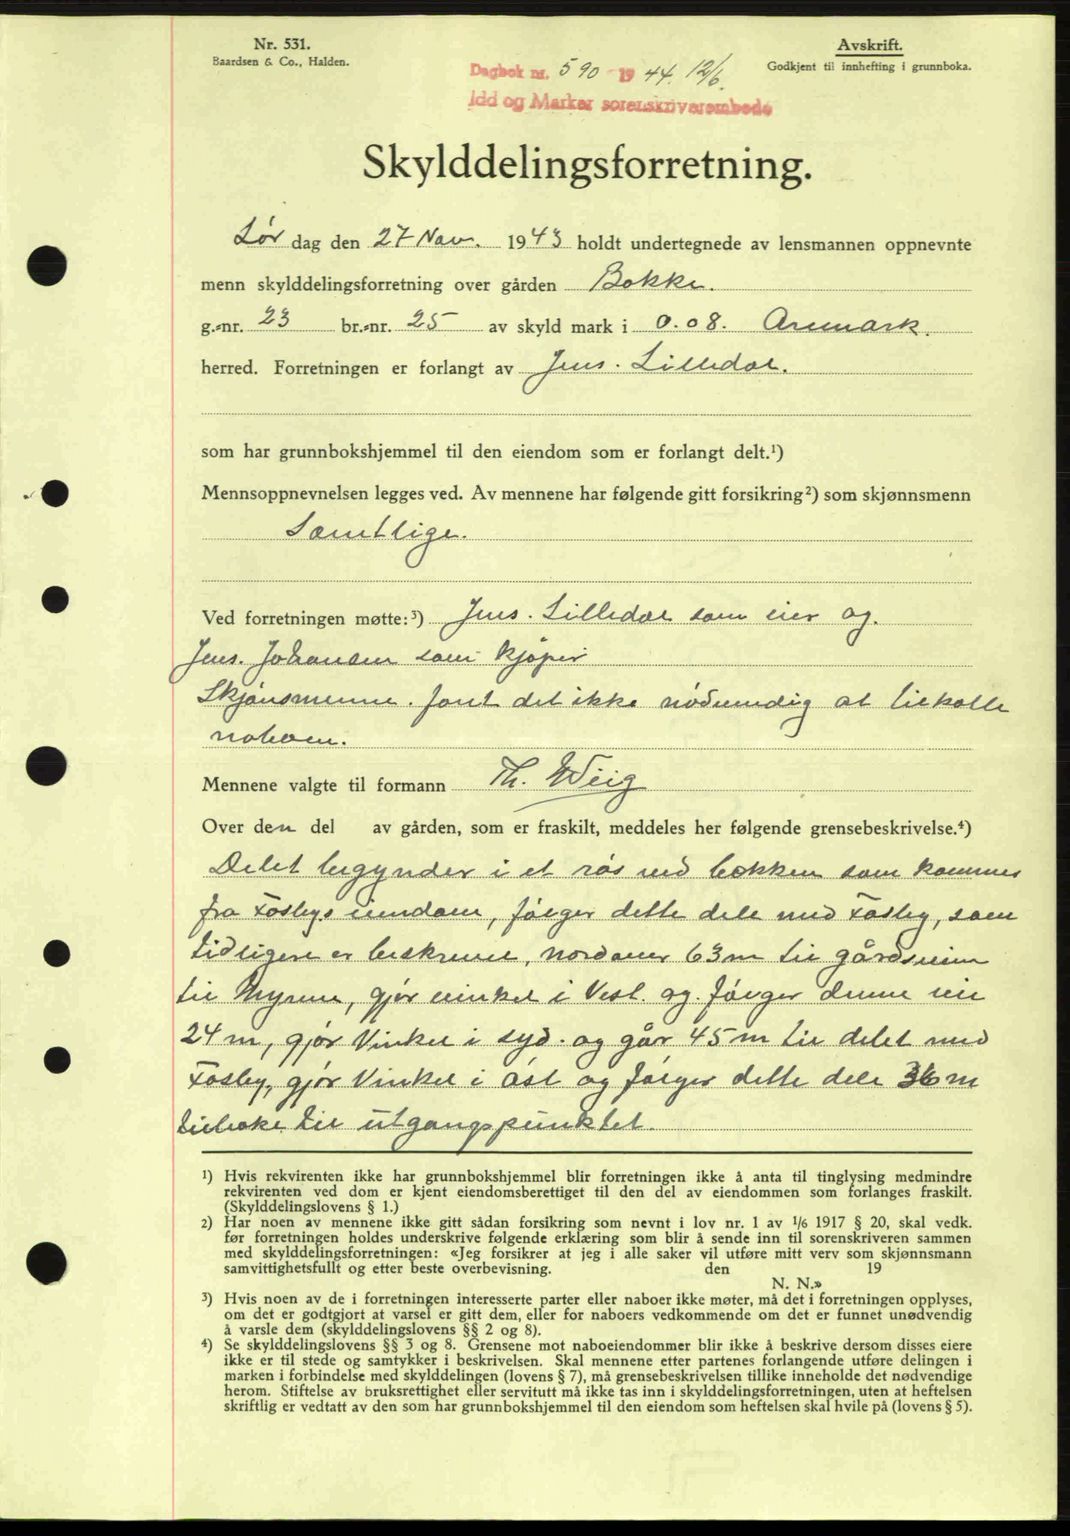 Nr. 531.
Baardsen & Co., Halden.
Avskrift.
Godkjent til innhefting i grunnboka.
Dagbok nr. 590 1944. 12/6.
Idd og Marker sorenskriverembede
Skylddelingsforretning.
Lør dag den 27 Nov. 1943 holdt undertegnede av lensmannen oppnevnte
menn skylddelingsforretning over gården Bokke.
g.-nr. 23 br.-nr. 25 av skyld mark i 0.08. Aremark.
herred. Forretningen er forlangt av Jens. Lilledal.
som har grunnbokshjemmel til den eiendom som er forlangt delt.¹)
Mennsoppnevnelsen legges ved. Av mennene har følgende gitt forsikring²) som skjønnsmenn
Samtlige.
Ved forretningen møtte:³) Jens. Lilledal som eier og.
Jens. Johansen som kjøper
Skjønsmenne. fant det ikke nødvendig at tilkalle
naboen.
Mennene valgte til formann Th. Weig
Over den del av gården, som er fraskilt, meddeles her følgende grensebeskrivelse.⁴)
Delet begynder i et røs ved bekken som kommer
fra Fosbys eiendom, følger dette dele med Fosby, som
tidligere er beskrevet, nordover 63 m til gårdsveien
til Myrene, gjør vinkel i Vest. og. følger denne vei
24 m, gjør Vinkel i syd. og går 45 m til delet med
Fosby, gjør Vinkel i øst og følger dette dele 36 m
tilbake til utgangspunktet.
¹) Hvis rekvirenten ikke har grunnbokshjemmel blir forretningen ikke å anta til tinglysing medmindre
rekvirenten ved dom er kjent eiendomsberettiget til den del av eiendommen som forlanges fraskilt.
(Skylddelingslovens § 1.)
²) Har noen av mennene ikke gitt sådan forsikring som nevnt i lov nr. 1 av 1/6 1917 § 20, skal vedk.
før forretningen holdes underskrive følgende erklæring som blir å sende inn til sorenskriveren sammen
med skylddelingsforretningen: «Jeg forsikrer at jeg i alle saker vil utføre mitt verv som skjønnsmann
samvittighetsfullt og etter beste overbevisning. den 19
N. N.»
³) Hvis noen av de i forretningen interesserte parter eller naboer ikke møter, må det i forretningen opplyses,
om det er godtgjort at varsel er gitt dem, eller for naboers vedkommende om det er funnet unødvendig
å varsle dem (skylddelingslovens §§ 2 og 8).
⁴) Se skylddelingslovens §§ 3 og 8. Grensene mot naboeiendommer blir ikke å beskrive dersom disses eiere
ikke er til stede og samtykker i beskrivelsen. Skal mennene etter partenes forlangende utføre delingen i
marken i forbindelse med skylddelingen (lovens § 7), må grensebeskrivelsen tillike inneholde det nødvendige
herom. Stiftelse av bruksrettighet eller servitutt må ikke tas inn i skylddelingsforretningen, uten at heftelsen
skriftlig er vedtatt av den som har grunnbokshjemmel til den eiendom som heftelsen skal hvile på (lovens § 5).